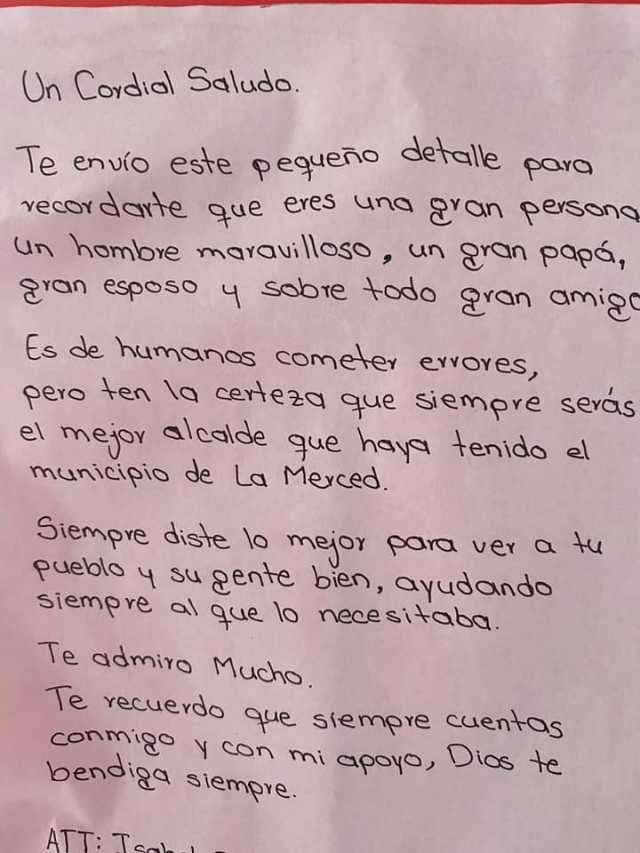 Un Cordial Saludo.
Te envío este pequeño detalle para
recordarte que eres una gran persona
un hombre maravilloso, un gran papá,
gran esposo y sobre todo gran amigo
Es de humanos cometer errores,
pero ten la certeza que siempre serás
el mejor alcalde que haya tenido el
municipio de La Merced.
Siempre diste lo mejor para ver a tu
pueblo y su gente bien, ayudando
siempre al que lo necesitaba.
Te admiro Mucho.
Te recuerdo que siempre cuentas
conmigo y con mi apoyo, Dios te
bendiga siempre.
ATT: